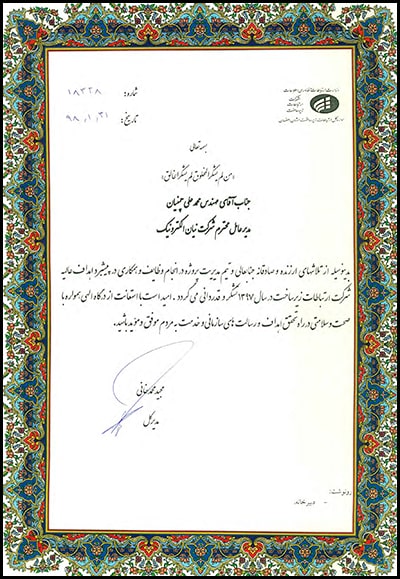 شماره: ۱۸۳۲۸
تاریخ: ۹۸,۱,۳۱
وزارت ارتباطات و فناوری اطلاعات
شرکت
ارتباطات
زیرساخت
بسمه تعالی
«من لم یشکر المخلوق لم یشکر الخالق»
جناب آقای مهندس محمد علی چمنیان
مدیر عامل محترم شرکت نیان الکترونیک
بدینوسیله از تلاشهای ارزنده و صادقانه جنابعالی و تیم مدیریت پروژه در انجام وظایف و همکاری در پیشبرد اهداف عالیه
شرکت ارتباطات زیرساخت در سال ۱۳۹۷ تشکر و قدردانی می گردد. امید است با استعانت از درگاه الهی همواره با
صحت و سلامتی در راه تحقق اهداف و رسالت های سازمانی و خدمت به مردم موفق و موید باشید.
مجید محمد سقائی
مدیر کل
رونوشت:
- دبیرخانه